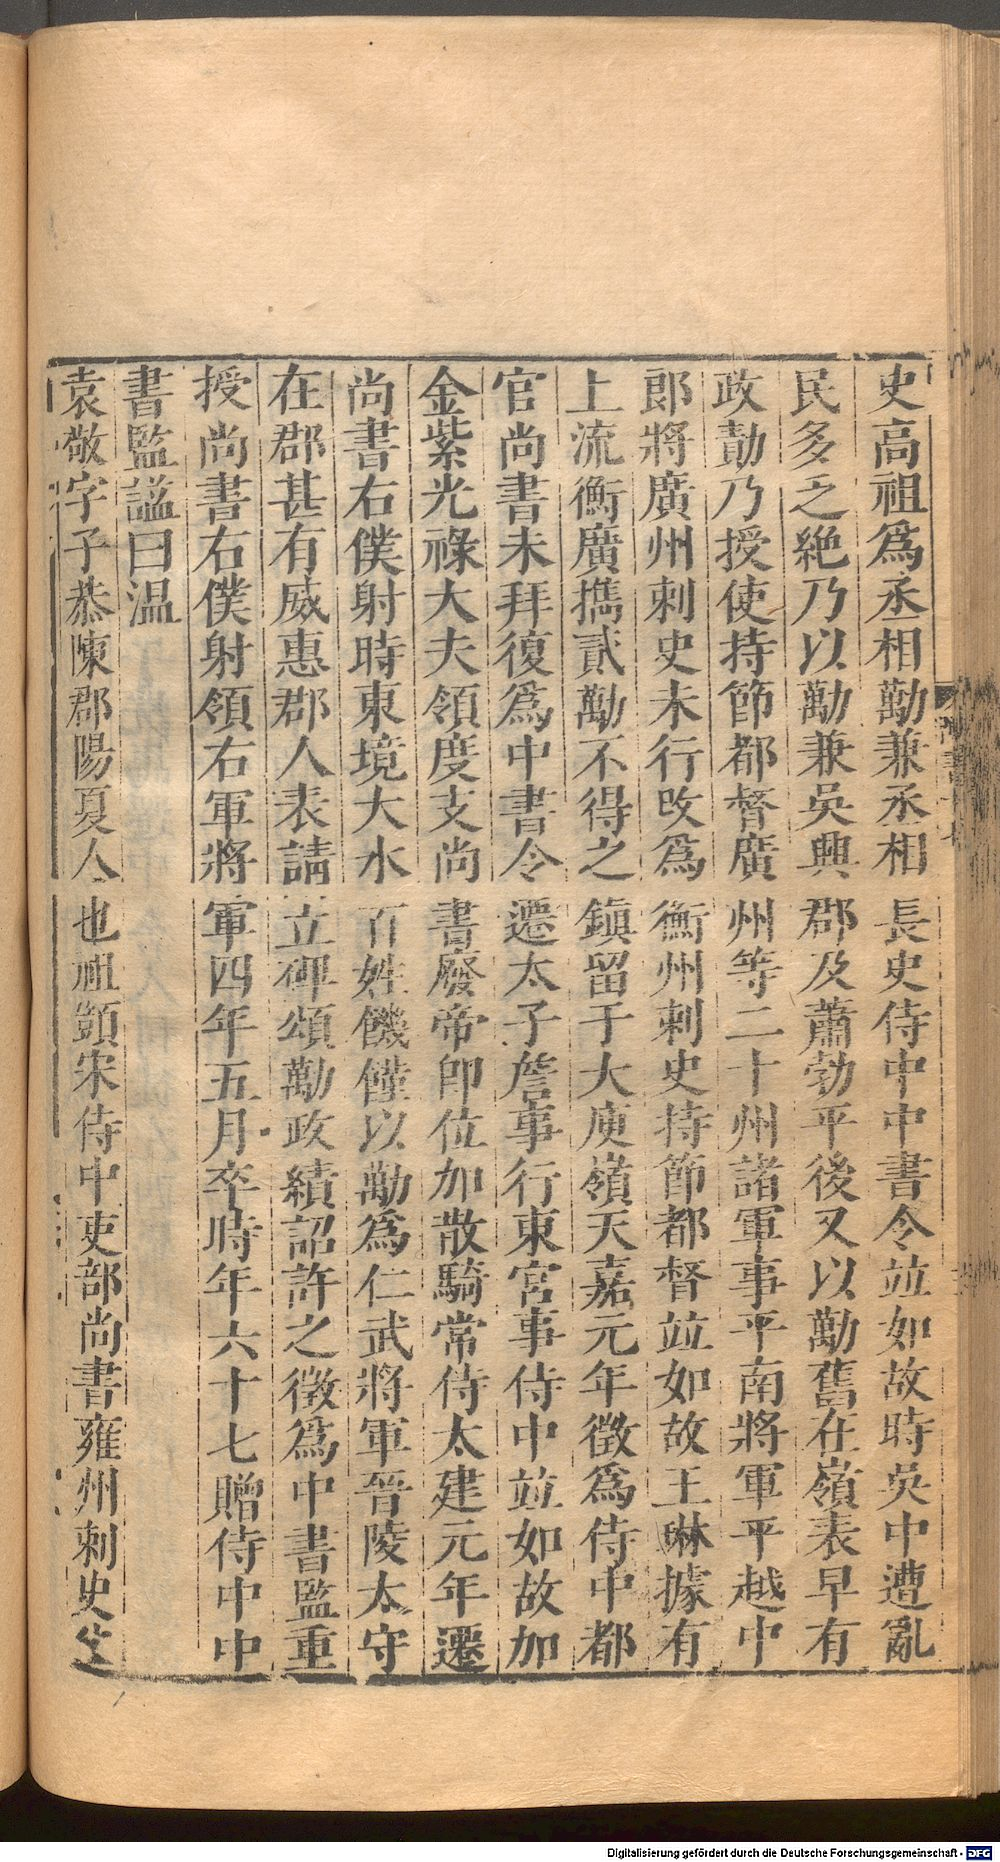 史高祖爲丞相勱兼丞相長史侍中中書令竝如故時吳中遭亂
民多乏絶乃以勱兼吳興郡及蕭勃平後又以勱舊在嶺表早有
政勣乃授使持節都督廣州等二十州諸軍事平南將軍平越中
郎將廣州刺史未行改爲衡州刺史持節都督竝如故王琳據有
上流衡廣攜貳勱不得之鎮留于大庾嶺天嘉元年徵爲侍中都
官尚書未拜復爲中書令遷太子詹事行東宮事侍中竝如故加
金紫光祿大夫領度支尚書廢帝卽位加散騎常侍太建元年遷
尚書右僕射時東境大水百姓饑饉以勱爲仁武將軍晉陵太守
在郡甚有威惠郡人表請立碑頌勱政績詔許之徵爲中書監重
授尚書右僕射領右軍將軍四年五月卒時年六十七贈侍中中
書監謚曰温
袁敬字子恭陳郡陽夏人也祖顗宋侍中吏部尚書雍州刺史
Digitalisierung gefördert durch die Deutsche Forschungsgemeinschaft - DFG